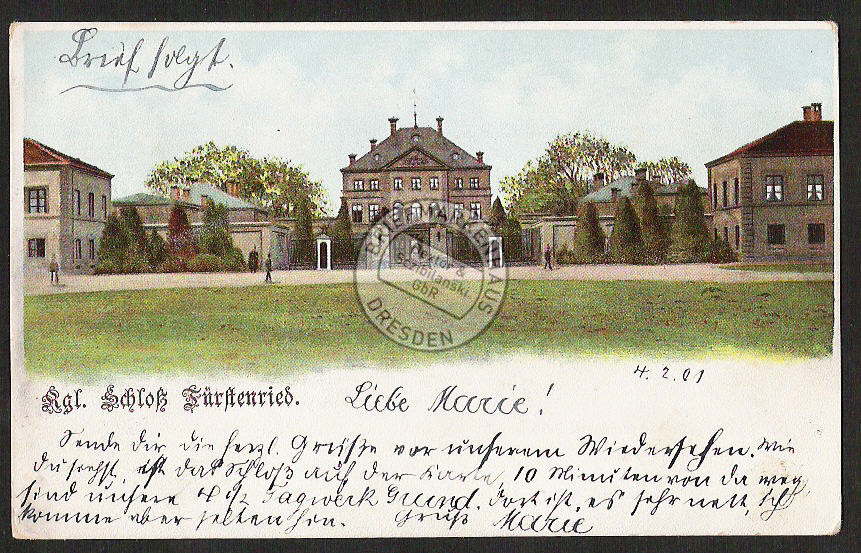 Brief folgt.
BRIEFMARKENHAUS
Rextor &
Scibilanski
GbR
DRESDEN
4.2.01
Kgl. Schloß Fürstenried.
Liebe Marie!
Sende dir die herzl. Grüße vor unserem Wiedersehen. Wie
du siehst, ist das Schloß auf der Karte, 10 Minuten von da weg,
sind unsere 4 Tagwerk Grund. Dort ist es sehr nett, ich
komme aber selten hin. Gruß Marie